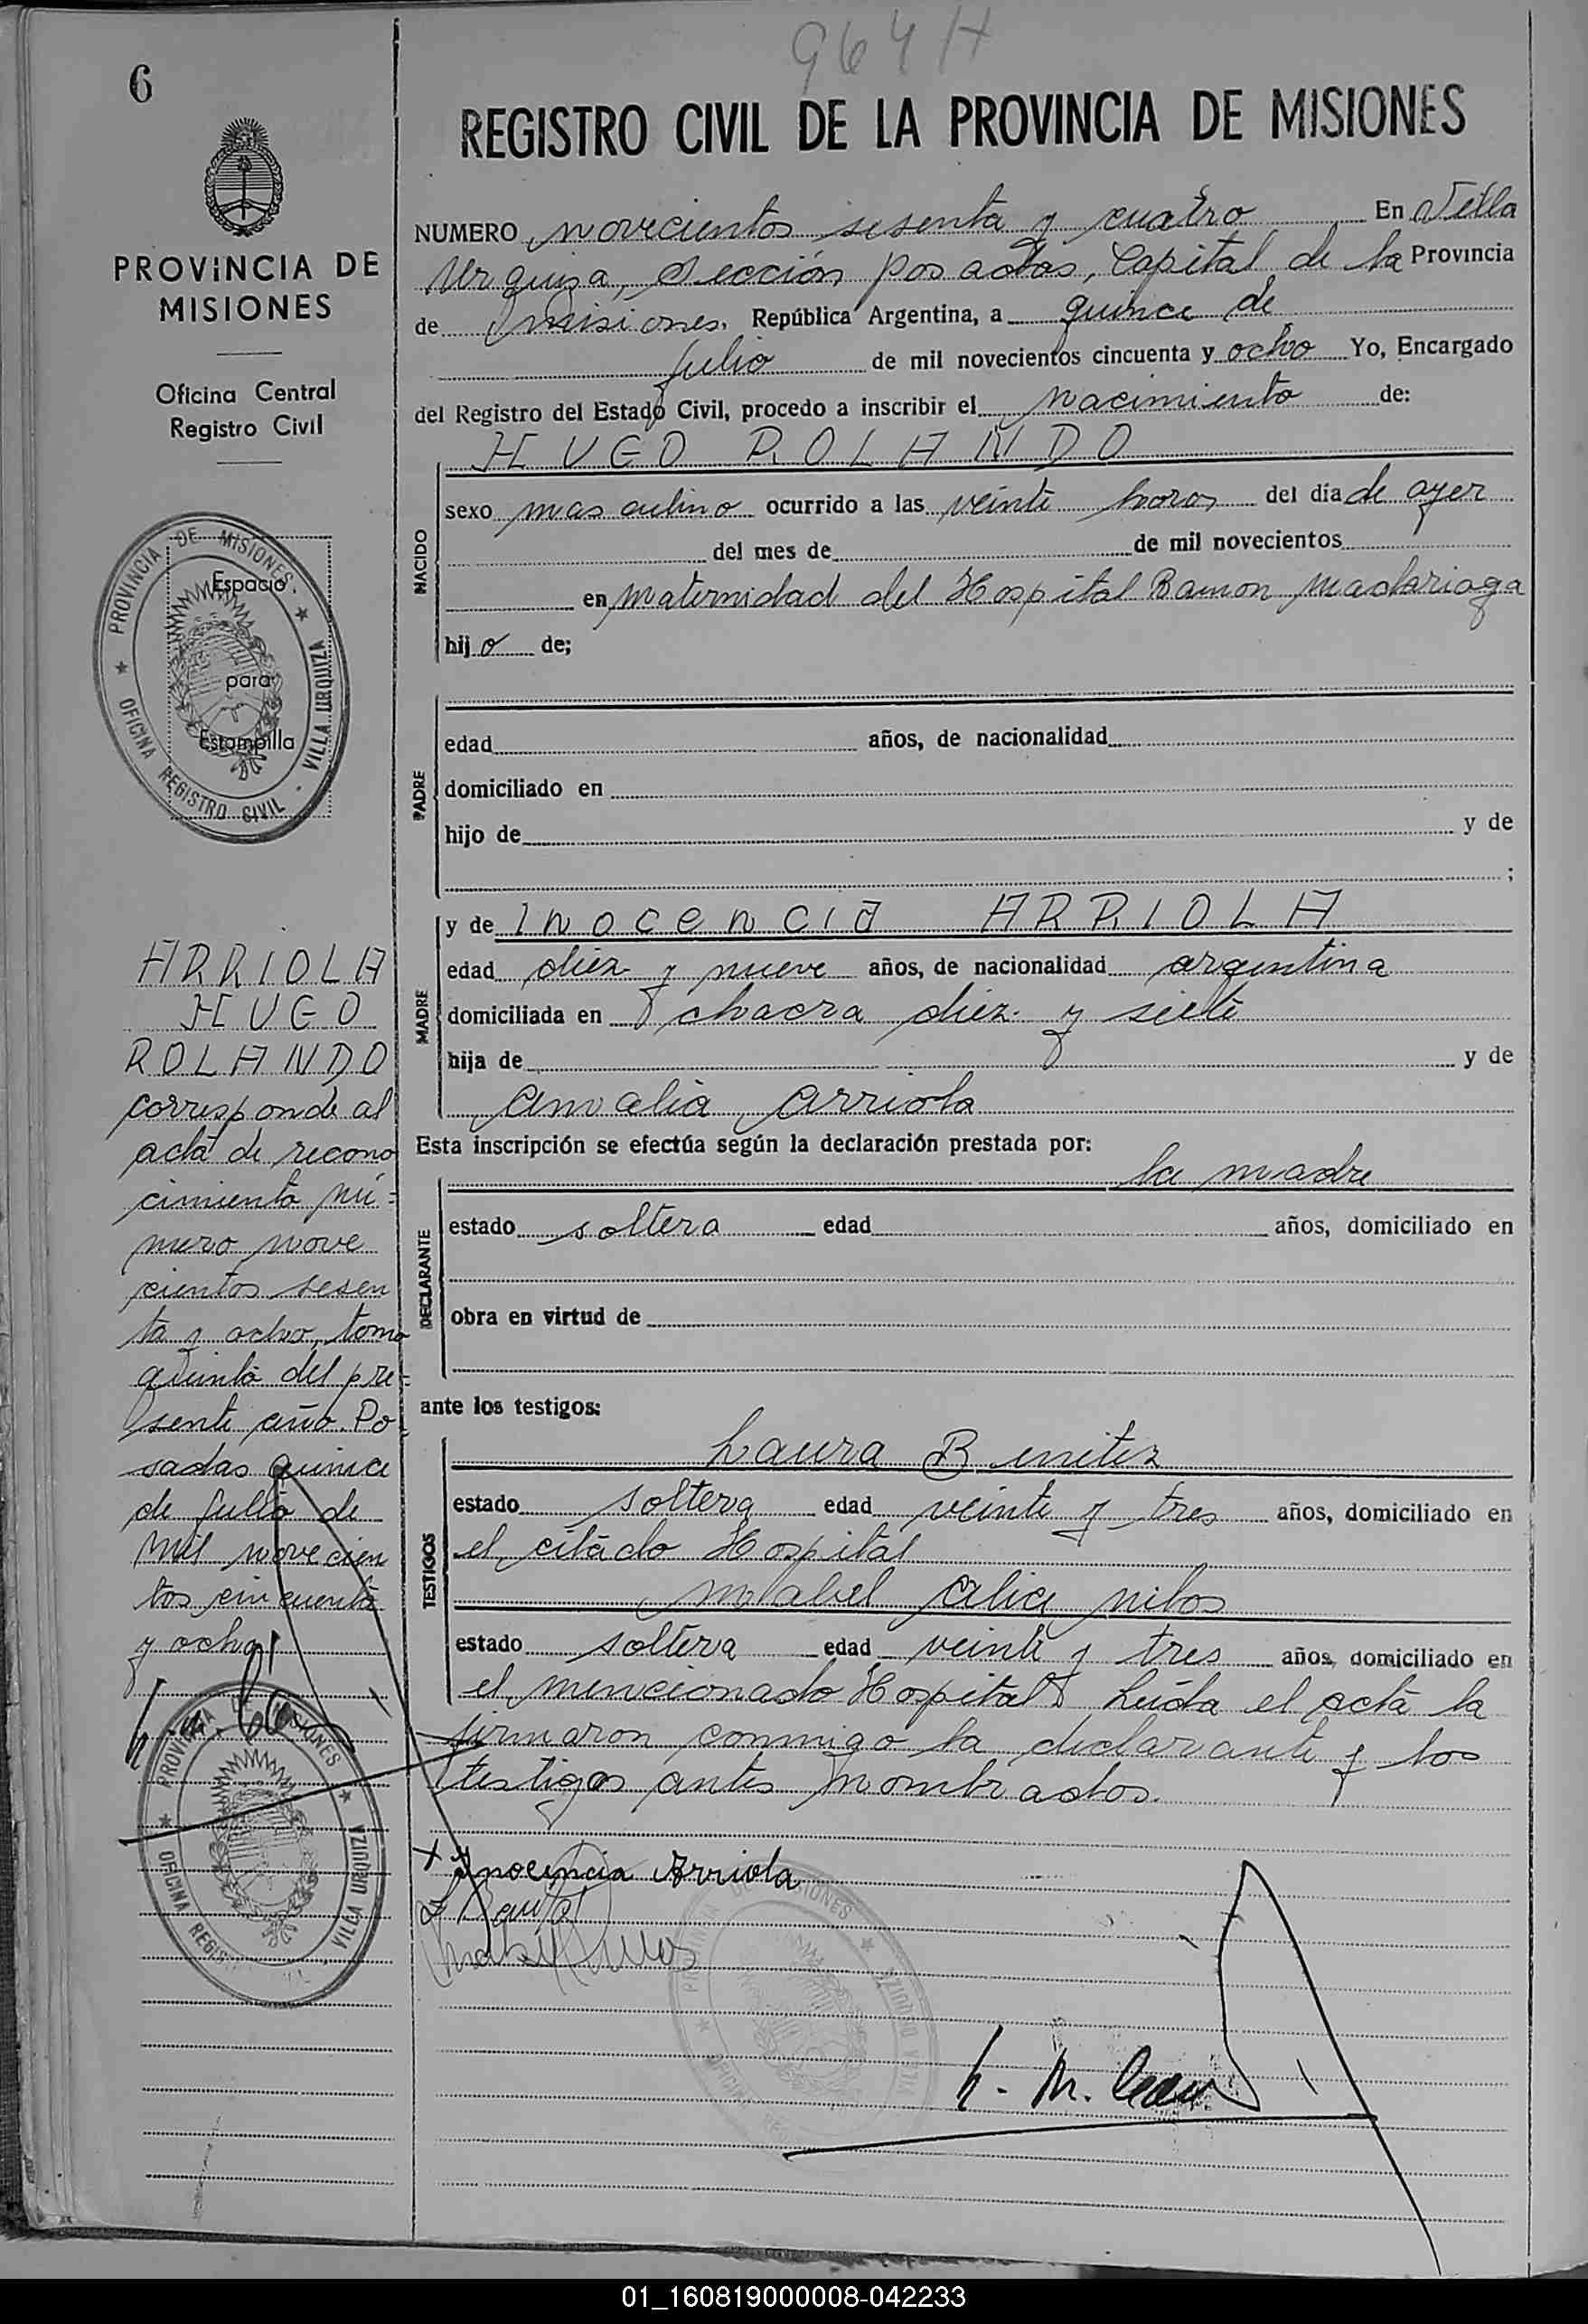 964 H
6
REGISTRO CIVIL DE LA PROVINCIA DE MISIONES
PROVINCIA DE
MISIONES
Oficina Central
Registro Civil
PROVINCIA DE MISIONES
OFICINA REGISTRO CIVIL - VILLA URQUIZA
Espacio
para
Estampilla
ARRIOLA
HUGO
ROLANDO
corresponde al
acta de recono
cimiento nú=
mero nove
cientos sesen
ta y ocho, tomo
quinto del pre=
sente año. Po
sadas quince
de Julio de
mil novecien
tos cincuenta
y ocho
PROVINCIA DE MISIONES
OFICINA REGISTRO CIVIL - VILLA URQUIZA
NUMERO novecientos sesenta y cuatro En Villa
Urquiza, Sección Posadas, Capital de la Provincia
de Misiones. República Argentina, a quince de
Julio de mil novecientos cincuenta y ocho Yo, Encargado
del Registro del Estado Civil, procedo a inscribir el nacimiento de:
HUGO ROLANDO
NACIDO
sexo masculino ocurrido a las veinte horas del día de ayer
del mes de de mil novecientos
en maternidad del Hospital Ramon Madariaga
hijo de;
PADRE
edad años, de nacionalidad
domiciliado en
hijo de y de
;
MADRE
y de Inocencia ARRIOLA
edad diez y nueve años, de nacionalidad argentina
domiciliada en chacra diez y siete
hija de y de
Amalia Arriola
Esta inscripción se efectúa según la declaración prestada por:
la madre
DECLARANTE
estado soltera edad años, domiciliado en
obra en virtud de
ante los testigos:
TESTIGOS
Laura Benitez
estado soltera edad veinte y tres años, domiciliado en
el citado Hospital
Mabel Alicia
estado soltera edad veinte y tres años, domiciliado en
el mencionado Hospital Leída el acta la
firmaron conmigo la declarante y los
testigos antes nombrados.
x Inocencia Arriola
01_160819000008-042233